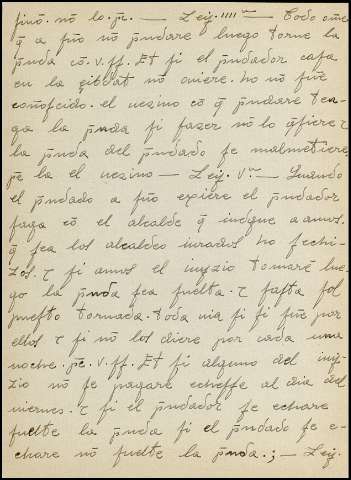 fino. nō lo. pe. — Ley. iiiiª — Todo ome
q̄ a fuo nō pndare luego torne la
pnda cō. v. ff. Et fi el pndador cafa
en la çibdat nō ouiere. ho nō fue
coñofcido. el uezino cō q̄ pndare ten-
ga la pnda fi fazer nō lo q̄fiere
la pnda del pndado fe malmetiere
pe la el uezino — Ley. vª — Quando
el pndado a fuo exiere el pndador
faga cō el alcalde q̄ iudgue a amos.
q̄ fea los alcaldes iurados. ho fechi-
zos. τ fi amos el iuyzio tomarē lue-
go la pnda fea fuelta. τ fafta fol
puefto tornada. toda uia fi fi fue por
ellos τ fi nō los diere por cada una
noche. pe. v. ff. Et fi alguno del iuy-
zio nō fe pagare echeffe al dia del
viernes. τ fi el pndador fe echare
fuelte la pnda fi el pndado fe e-
chare nō fuelte la pnda.; — Ley.